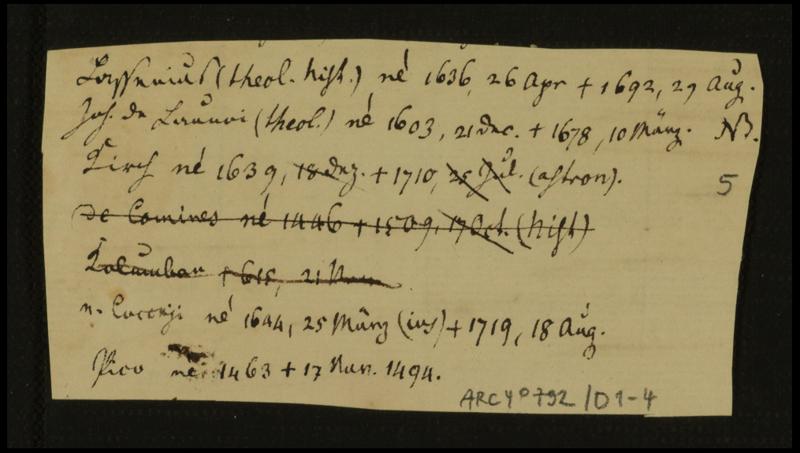 Lassenius (theol. hist.) né 1636, 26 Apr + 1692, 29 Aug.
Joh. de Launoi (theol.) né 1603, 21 Dec. + 1678, 10 März. NB.
Kirch né 1639, 18 Dez. + 1710, 25 Jul. (astron).
5
de Comines né 1446 + 1509, 17 Oct. (hist)
Columban + 615, 21 Nov.
v. Cocceji né 1644, 25 März (ius) + 1719, 18 Aug.
Pico né 1463 + 17 Nov. 1494.
ARC 4° 792 / D 1-4